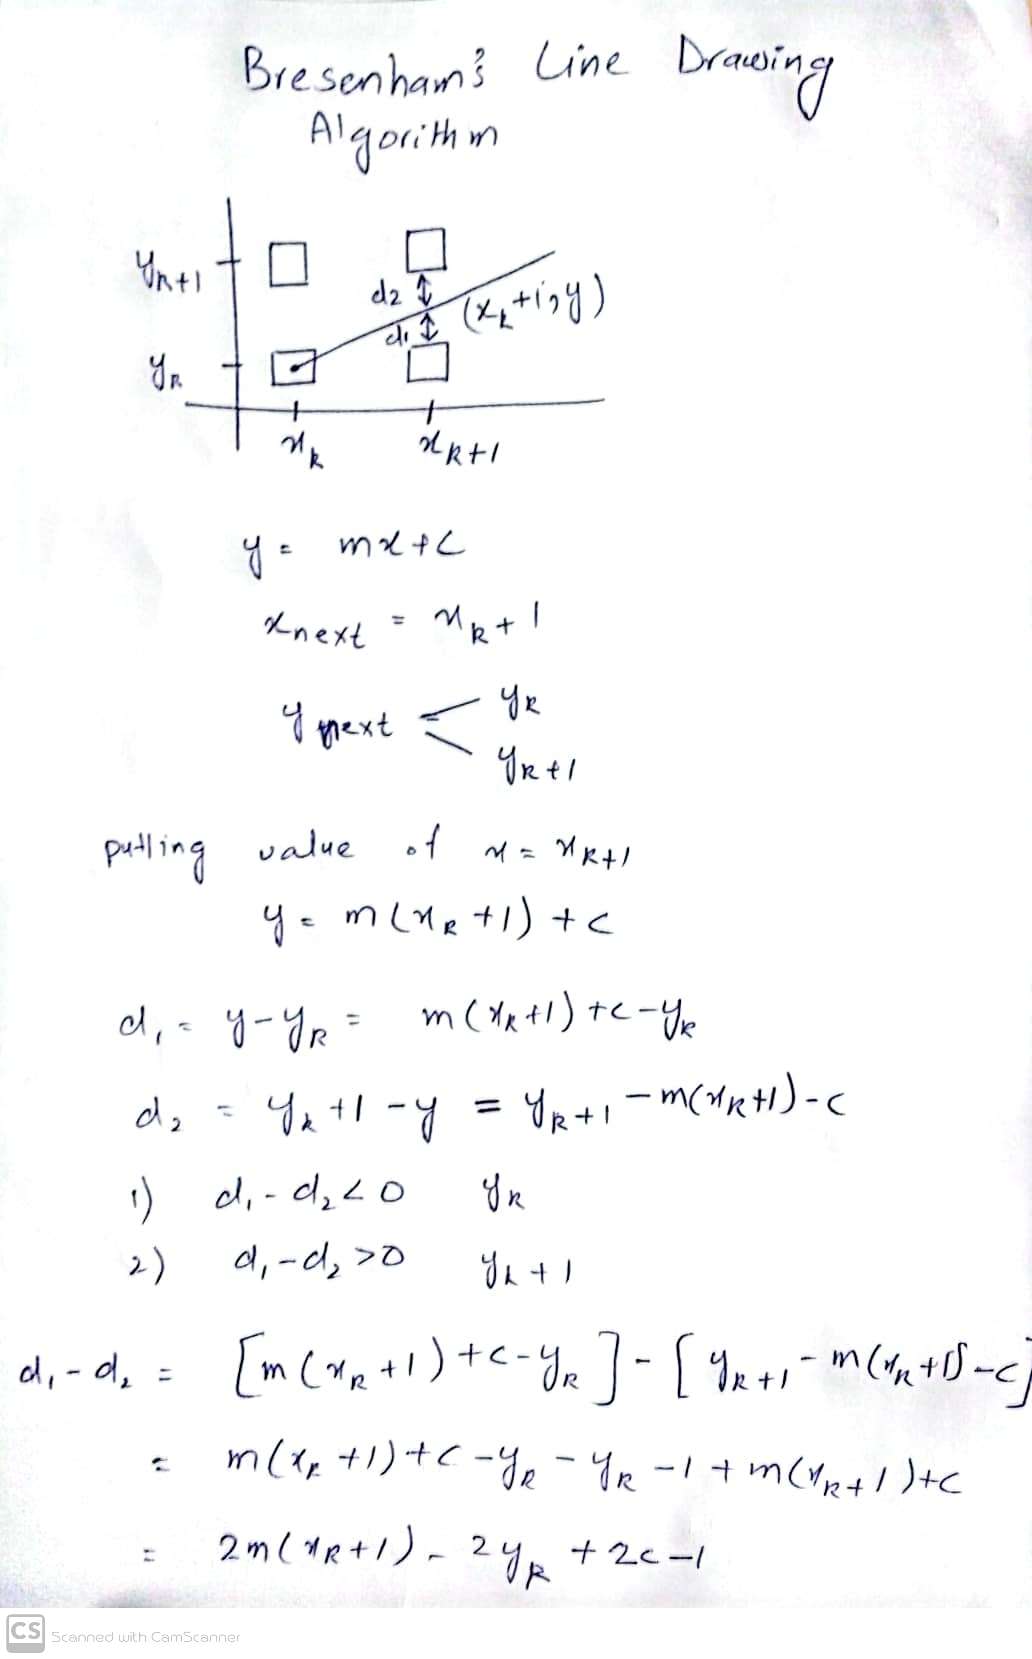 Bresenham's Line Drawing
Algorithm
yk+1
d2
(xk+1, y)
d1
yk
xk
xk+1
y = mx+c
xnext = xk+1
ynext < yk
yk+1
putting value of x = xk+1
y = m(xk+1)+c
d1 = y-yk = m(xk+1)+c-yk
d2 = yk+1-y = yk+1-m(xk+1)-c
1) d1-d2<0 yk
2) d1-d2>0 yk+1
d1-d2 = [m(xk+1)+c-yk]-[yk+1-m(xk+1)-c]
= m(xk+1)+c-yk-yk-1+m(xk+1)+c
= 2m(xk+1)-2yk+2c-1
CS Scanned with CamScanner